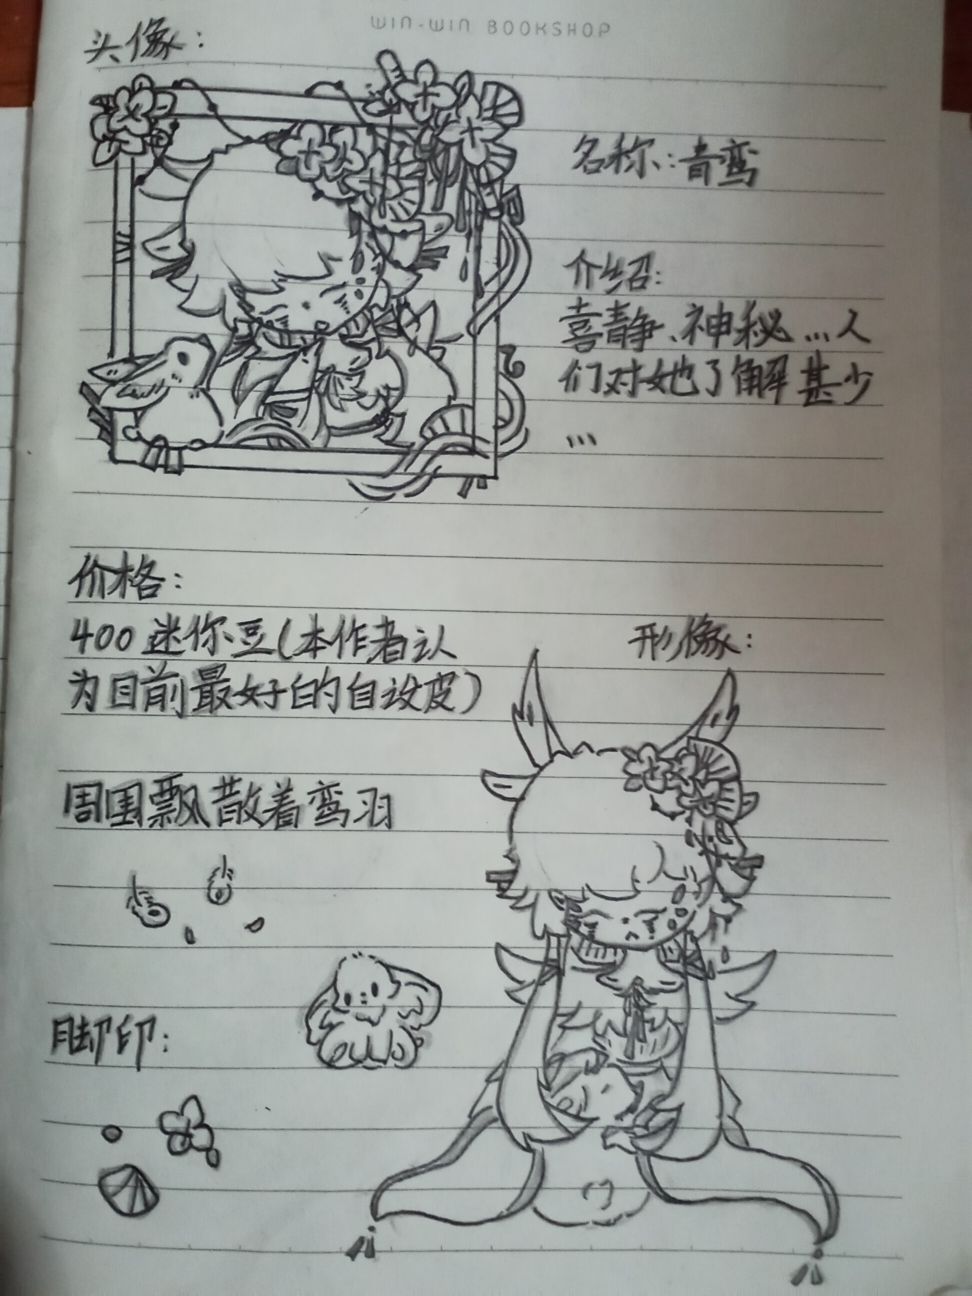 WIN-WIN BOOKSHOP
头像:
名称:青鸾
介绍:
喜静、神秘...人
们对她了解甚少
...
价格:
400迷你豆(本作者认
为目前最好的自设皮)
形像:
周围飘散着鸾羽
脚印: